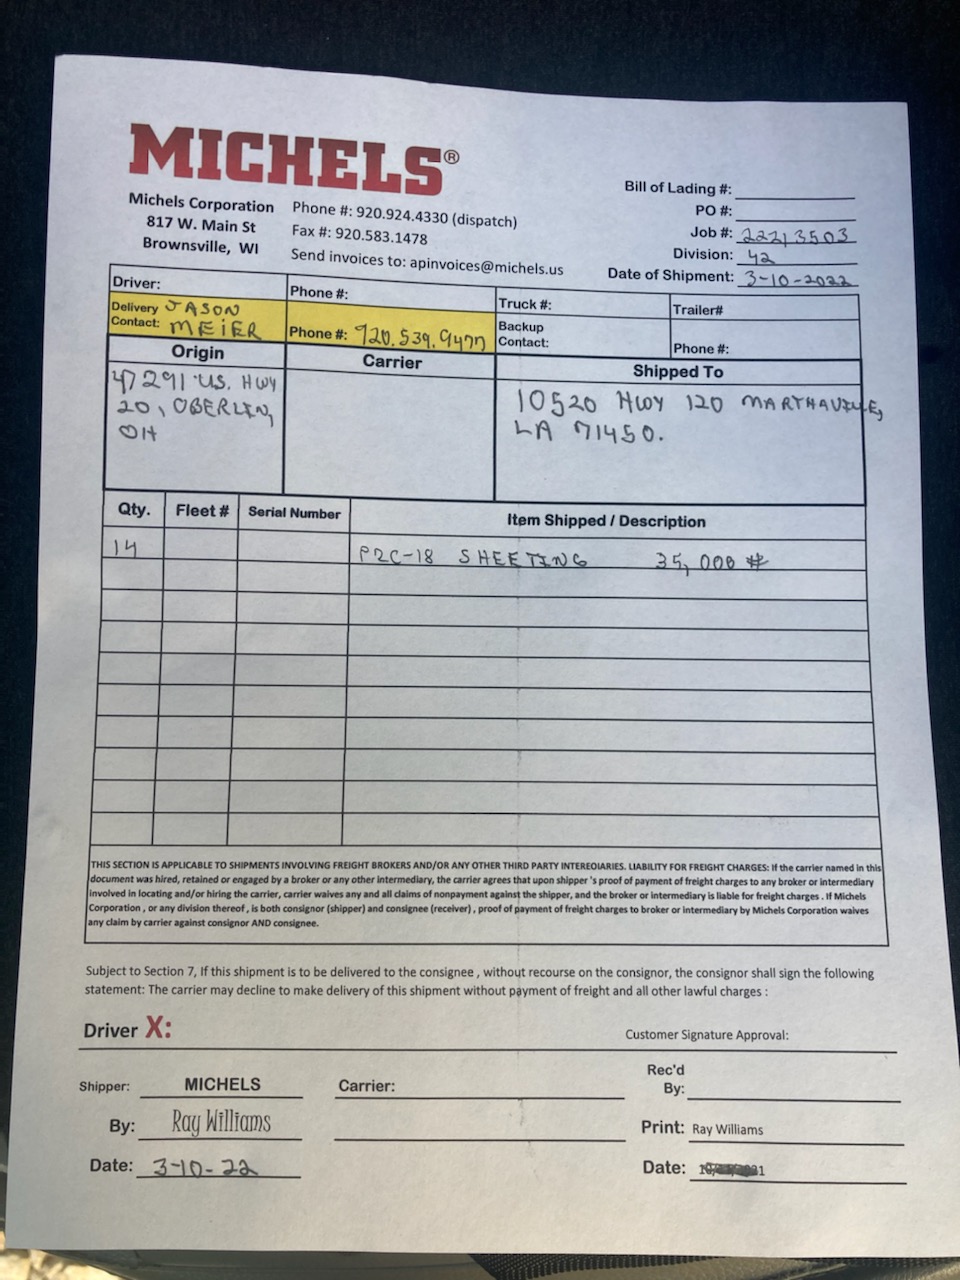 MICHELS®
Michels Corporation
817 W. Main St
Brownsville, WI
Phone #: 920.924.4330 (dispatch)
Fax #: 920.583.1478
Send invoices to: apinvoices@michels.us
Bill of Lading #:
PO #:
Job #: 22213503
Division: 42
Date of Shipment: 3-10-2022
Driver:
Phone #:
Truck #:
Trailer#
Delivery Contact: JASON MEIER
Phone #: 920.539.9477
Backup Contact:
Phone #:
Origin
Carrier
Shipped To
47291 US. HWY
20, OBERLIN,
OH
10520 HWY 120 MARTHAVILLE,
LA 71450.
Qty. Fleet # Serial Number Item Shipped / Description
14 PZC-18 SHEETING 35,000 #
THIS SECTION IS APPLICABLE TO SHIPMENTS INVOLVING FREIGHT BROKERS AND/OR ANY OTHER THIRD PARTY INTEREDIARIES. LIABILITY FOR FREIGHT CHARGES: If the carrier named in this
document was hired, retained or engaged by a broker or any other intermediary, the carrier agrees that upon shipper 's proof of payment of freight charges to any broker or intermediary
involved in locating and/or hiring the carrier, carrier waives any and all claims of nonpayment against the shipper, and the broker or intermediary is liable for freight charges . If Michels
Corporation , or any division thereof , is both consignor (shipper) and consignee (receiver) , proof of payment of freight charges to broker or intermediary by Michels Corporation waives
any claim by carrier against consignor AND consignee.
Subject to Section 7, If this shipment is to be delivered to the consignee , without recourse on the consignor, the consignor shall sign the following
statement: The carrier may decline to make delivery of this shipment without payment of freight and all other lawful charges :
Driver X:
Customer Signature Approval:
Shipper: MICHELS
Carrier:
Rec'd
By:
By: Ray Williams
Print: Ray Williams
Date: 3-10-22
Date: